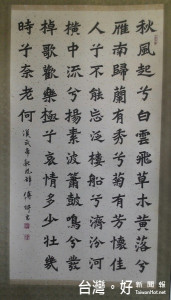 秋風起兮白雲飛草木黃落兮
雁南歸蘭有秀兮菊有芳懷佳
人兮不能忘泛樓船兮濟汾河
橫中流兮揚素波簫鼓鳴兮發
棹歌歡樂極兮哀情多少壯幾
時兮奈老何
漢武帝秋風辭
台灣。好 新聞報
TaiwanHot.net